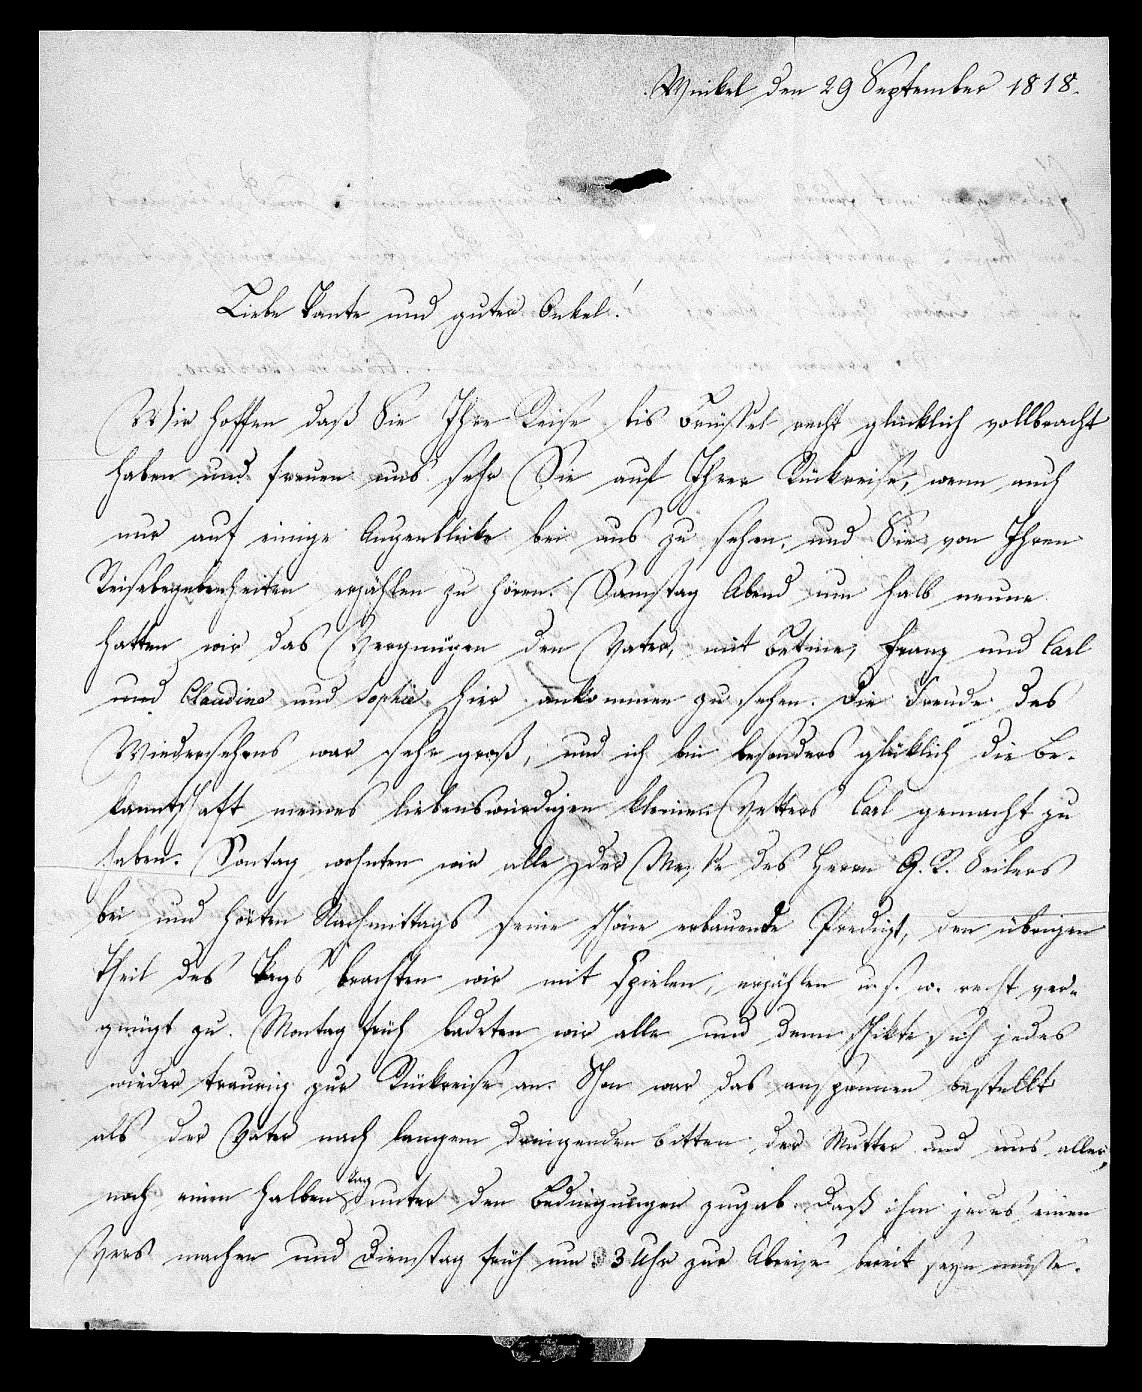 Winkel den 29 September 1818.
Liebe Tante und guter Onkel!
Wir hoffen daß Sie Ihre Reise bis Brüssel recht glücklich vollbracht
haben und freuen uns sehr Sie auf Ihrer Rükreise, wenn auch
nur auf einige Augenblicke bei uns zu sehen, und Sie von Ihren
Reisebegebenheiten erzählen zu hören. Samstag Abend um halb neune
hatten wir das Vergnügen den Vater, mit Betine, Franz und Carl
und Claudine und Sophie hier ankommen zu sehen. Die Freude des
Wiedersehens war sehr groß, und ich bin besonders glüklich die Be-
kanntschaft meines liebenswürdigen kleinen Vetters Carl gemacht zu
haben. Sontag wohnten wir alle der Messe des Herrn G. R. Sailers
bei und hörten Nachmittags seine schöne erbauende Predigt, den übrigen
Theil des Tags brachten wir mit Spielen, erzählen u. s. w. recht ver-
gnügt zu. Montag früh badeten wir alle und dann schikte sich jedes
wieder traurig zur Rükreise an. Schon war das anspannen bestellt
als der Vater nach langem dringenden bitten der Mutter und uns aller,
noch einen halben Tag unter den Bedingungen zugab. Daß ihm jedes einen
Vers machen und Dienstag früh um 3 Uhr zur Abreise bereit seyn müsse.